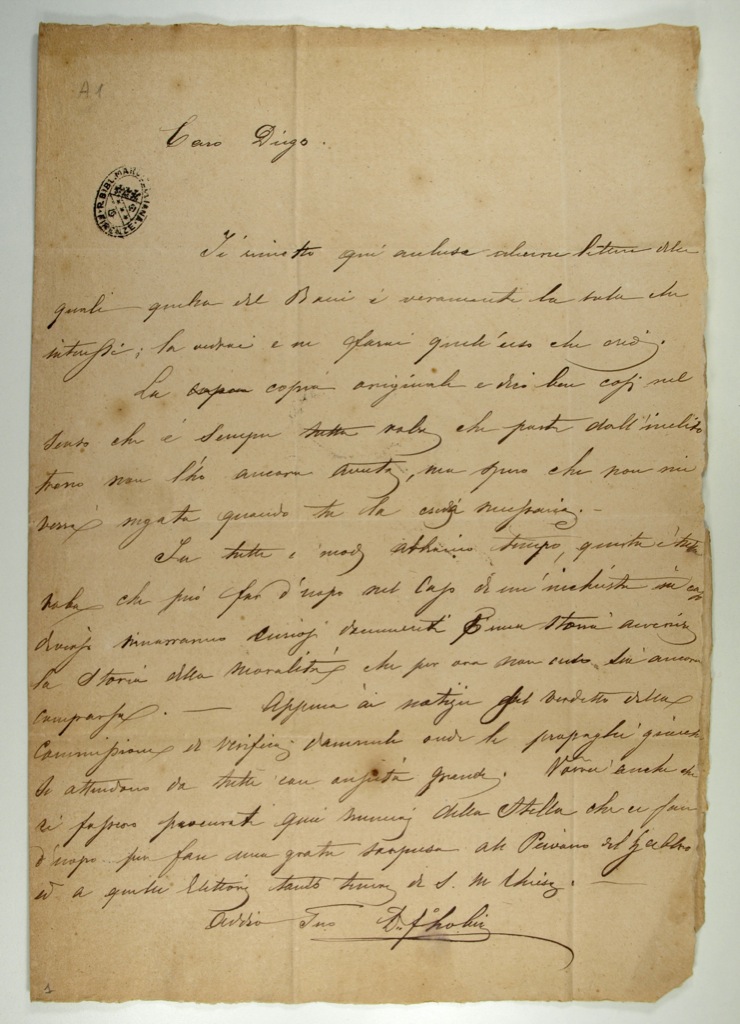 A 1
Caro Diego.
R. BIBL. MARUCELLIANA FIRENZE
Ti rimetto qui acclusa alcune lettere delle
quali quella del Bacci è veramente la sola che
interessi; la vedrai e ne farai quell'uso che credi.
La copia originale e dirò ben così nel
senso che è sempre roba che parte dall'inclito
non l'ho ancora avuta, ma spero che non mi
verrà negata quando tu la creda necessaria. -
In tutti i modi abbiamo tempo, questa è tutta
roba che può far d'uopo nel caso di un'inchiesta in caso
diverso rimarranno curiosi documenti una storia avvenire
la Storia della moralità che per ora non credo sia ancora
comparsa. — Appena ài notizie del verdetto della
Commissione di verifica dammele onde le propaghi giacchè
si attendono da tutti con ansietà grande. Vorrei anche che
ci fossero procurati numeri della Stella che ci fan
d'uopo per fare una grata sorpresa al Pievano del Gabbro
ed a quelli Elettori di S. M.
Addio Tuo D.
1